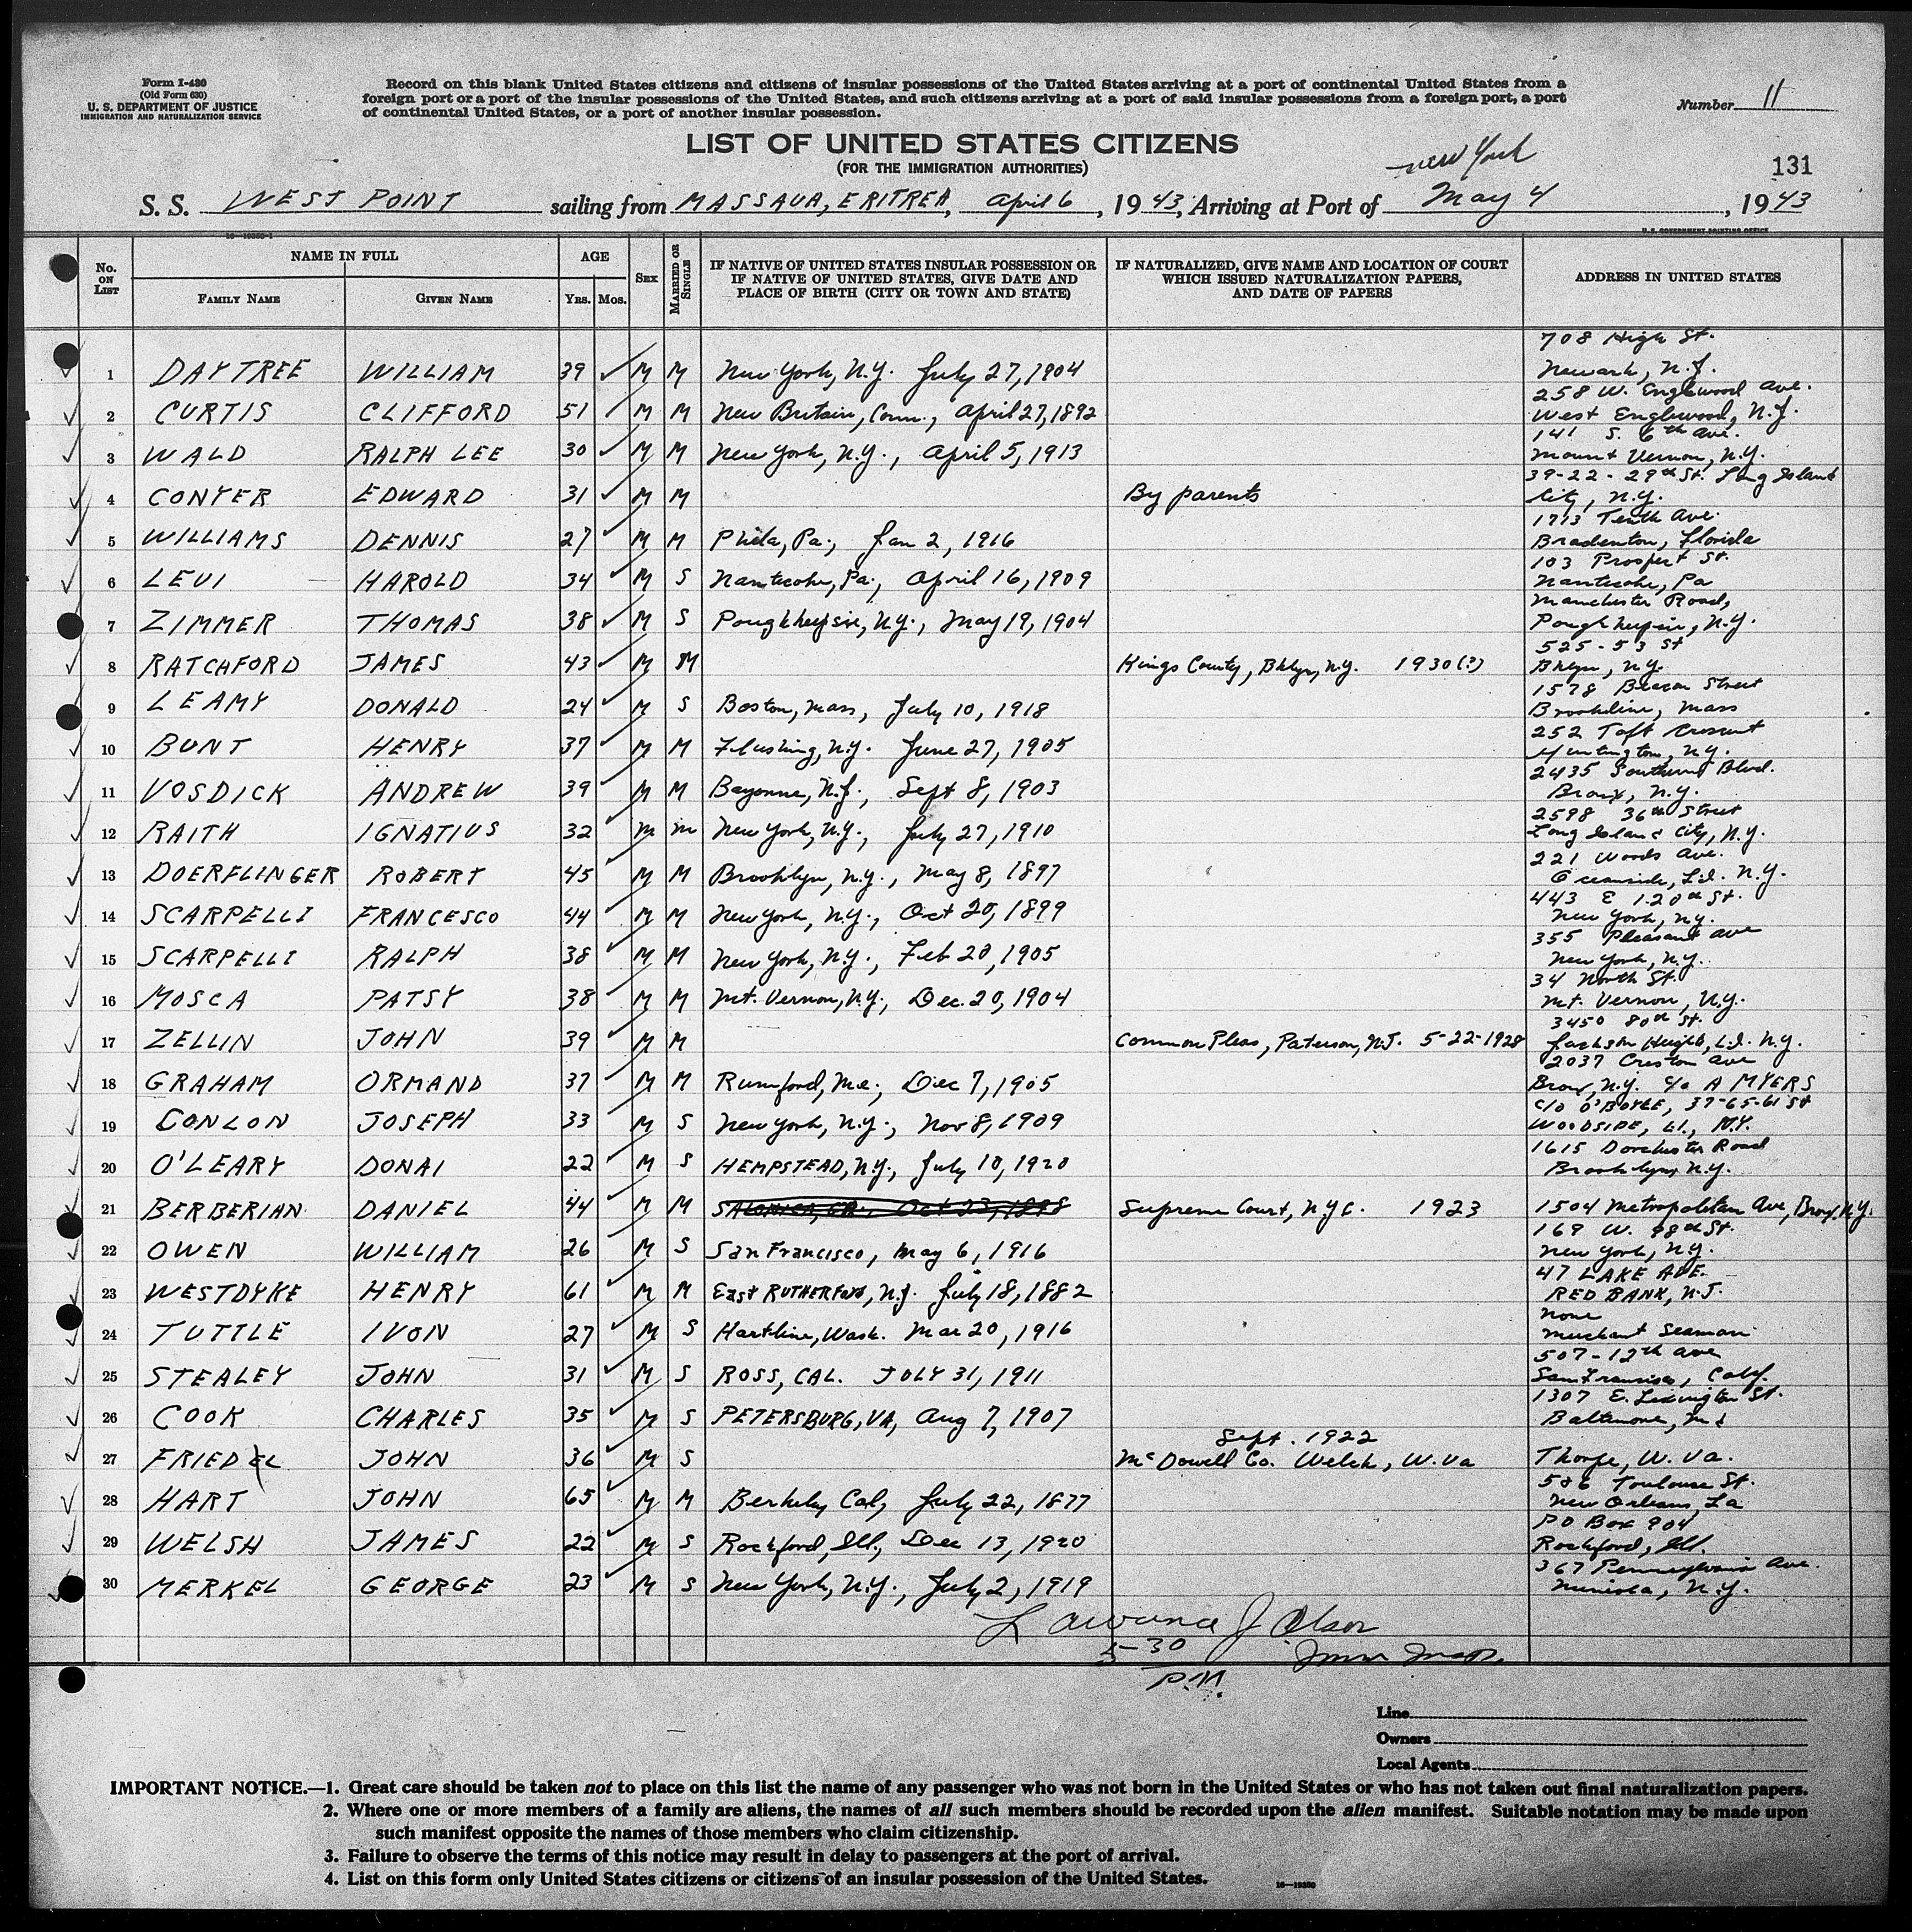 Form I-430
(Old Form 630)
U. S. DEPARTMENT OF JUSTICE
IMMIGRATION AND NATURALIZATION SERVICE
Record on this blank United States citizens and citizens of insular possessions of the United States arriving at a port of continental United States from a
foreign port or a port of the insular possessions of the United States, and such citizens arriving at a port of said insular possessions from a foreign port, a port
of continental United States, or a port of another insular possession.
Number 11
LIST OF UNITED STATES CITIZENS
(FOR THE IMMIGRATION AUTHORITIES)
New York
131
S. S. WEST POINT sailing from MASSAUA, ERITREA, April 6, 1943, Arriving at Port of May 4, 1943
U. S. GOVERNMENT PRINTING OFFICE
No. ON LIST
NAME IN FULL
FAMILY NAME GIVEN NAME
AGE
YRS. MOS.
SEX
MARRIED OR SINGLE
IF NATIVE OF UNITED STATES INSULAR POSSESSION OR
IF NATIVE OF UNITED STATES, GIVE DATE AND
PLACE OF BIRTH (CITY OR TOWN AND STATE)
IF NATURALIZED, GIVE NAME AND LOCATION OF COURT
WHICH ISSUED NATURALIZATION PAPERS,
AND DATE OF PAPERS
ADDRESS IN UNITED STATES
708 High St.
1 DAYTREE WILLIAM 39 M M New York, N.Y. July 27, 1904 Newark, N.J.
258 W. Englewood Ave.
2 CURTIS CLIFFORD 51 M M New Britain, Conn., April 27, 1892 West Englewood, N.J.
141 S. 6th Ave.
3 WALD RALPH LEE 30 M M New York, N.Y., April 5, 1913 Mount Vernon, N.Y.
39-22-29th St. Long Island
4 CONYER EDWARD 31 M M By parents City, N.Y.
1713 Tenth Ave.
5 WILLIAMS DENNIS 27 M M Phila, Pa., Jan 2, 1916 Bradenton, Florida
103 Prospect St.
6 LEVI HAROLD 34 M S Nanticoke, Pa., April 16, 1909 Nanticoke, Pa
Manchester Road,
7 ZIMMER THOMAS 38 M S Poughkeepsie, N.Y., May 19, 1904 Poughkeepsie, N.Y.
525-53 St
8 RATCHFORD JAMES 43 M M Kings County, Bklyn, N.Y. 1930(?) Bklyn, N.Y.
1578 Beacon Street
9 LEAMY DONALD 24 M S Boston, Mass, July 10, 1918 Brookline, Mass
252 Taft Crescent
10 BUNT HENRY 37 M M Flushing, N.Y. June 27, 1905 Huntington, N.Y.
2435 Southern Blvd.
11 VOSDICK ANDREW 39 M M Bayonne, N.J., Sept 8, 1903 Bronx, N.Y.
2598 36th Street
12 RAITH IGNATIUS 32 M M New York, N.Y., July 27, 1910 Long Island City, N.Y.
221 Woods Ave.
13 DOERFLINGER ROBERT 45 M M Brooklyn, N.Y., May 8, 1897 Oceanside, L.I. N.Y.
443 E 120th St.
14 SCARPELLI FRANCESCO 44 M M New York, N.Y., Oct 20, 1899 New York, N.Y.
355 Pleasant Ave
15 SCARPELLI RALPH 38 M M New York, N.Y., Feb 20, 1905 New York, N.Y.
34 North St.
16 MOSCA PATSY 38 M M Mt. Vernon, N.Y., Dec. 20, 1904 Mt. Vernon, N.Y.
3450 80th St.
17 ZELLIN JOHN 39 M M Common Pleas, Paterson, N.J. 5-22-1928 Jackson Heights, L.I. N.Y.
2037 Creston Ave
18 GRAHAM ORMAND 37 M M Rumford, Me., Dec 7, 1905 Bronx, N.Y. c/o A MYERS
C/O O'BOYLE, 37-65-61 St
19 CONLON JOSEPH 33 M S New York, N.Y., Nov 8, 1909 WOODSIDE, LI., N.Y.
1615 Dorchester Road
20 O'LEARY DONAL 22 M S HEMPSTEAD, N.Y., July 10, 1920 Brooklyn, N.Y.
21 BERBERIAN DANIEL 44 M M SALONICA, GR., Oct 23, 1898 Supreme Court, N.Y.C. 1923 1504 Metropolitan Ave, Bronx, N.Y.
169 W. 98th St.
22 OWEN WILLIAM 26 M S San Francisco, May 6, 1916 New York, N.Y.
47 LAKE AVE.
23 WESTDYKE HENRY 61 M M East RUTHERFORD, N.J. July 18, 1882 RED BANK, N.J.
None
24 TUTTLE IVON 27 M S Hartline, Wash. Mar 20, 1916 Merchant Seaman
507-12th Ave
25 STEALEY JOHN 31 M S ROSS, CAL. JULY 31, 1911 San Francisco, Calif.
1307 E. Lexington St.
26 COOK CHARLES 35 M S PETERSBURG, VA, Aug 7, 1907 Baltimore, Md
Sept. 1922
27 FRIEDEL JOHN 36 M S McDowell Co. Welch, W.Va Thorpe, W.Va.
586 Toulouse St.
28 HART JOHN 65 M M Berkeley Cal, July 22, 1877 New Orleans, La
PO Box 904
29 WELSH JAMES 22 M S Rockford, Ill., Dec 13, 1920 Rockford, Ill.
367 Pennsylvania Ave.
30 MERKEL GEORGE 23 M S New York, N.Y., July 2, 1919 Mineola, N.Y.
Lawrence J Olson
5-30 Imm Insp.
P.M.
Line
Owners
Local Agents
IMPORTANT NOTICE.—1. Great care should be taken not to place on this list the name of any passenger who was not born in the United States or who has not taken out final naturalization papers.
2. Where one or more members of a family are aliens, the names of all such members should be recorded upon the alien manifest. Suitable notation may be made upon
such manifest opposite the names of those members who claim citizenship.
3. Failure to observe the terms of this notice may result in delay to passengers at the port of arrival.
4. List on this form only United States citizens or citizens of an insular possession of the United States.